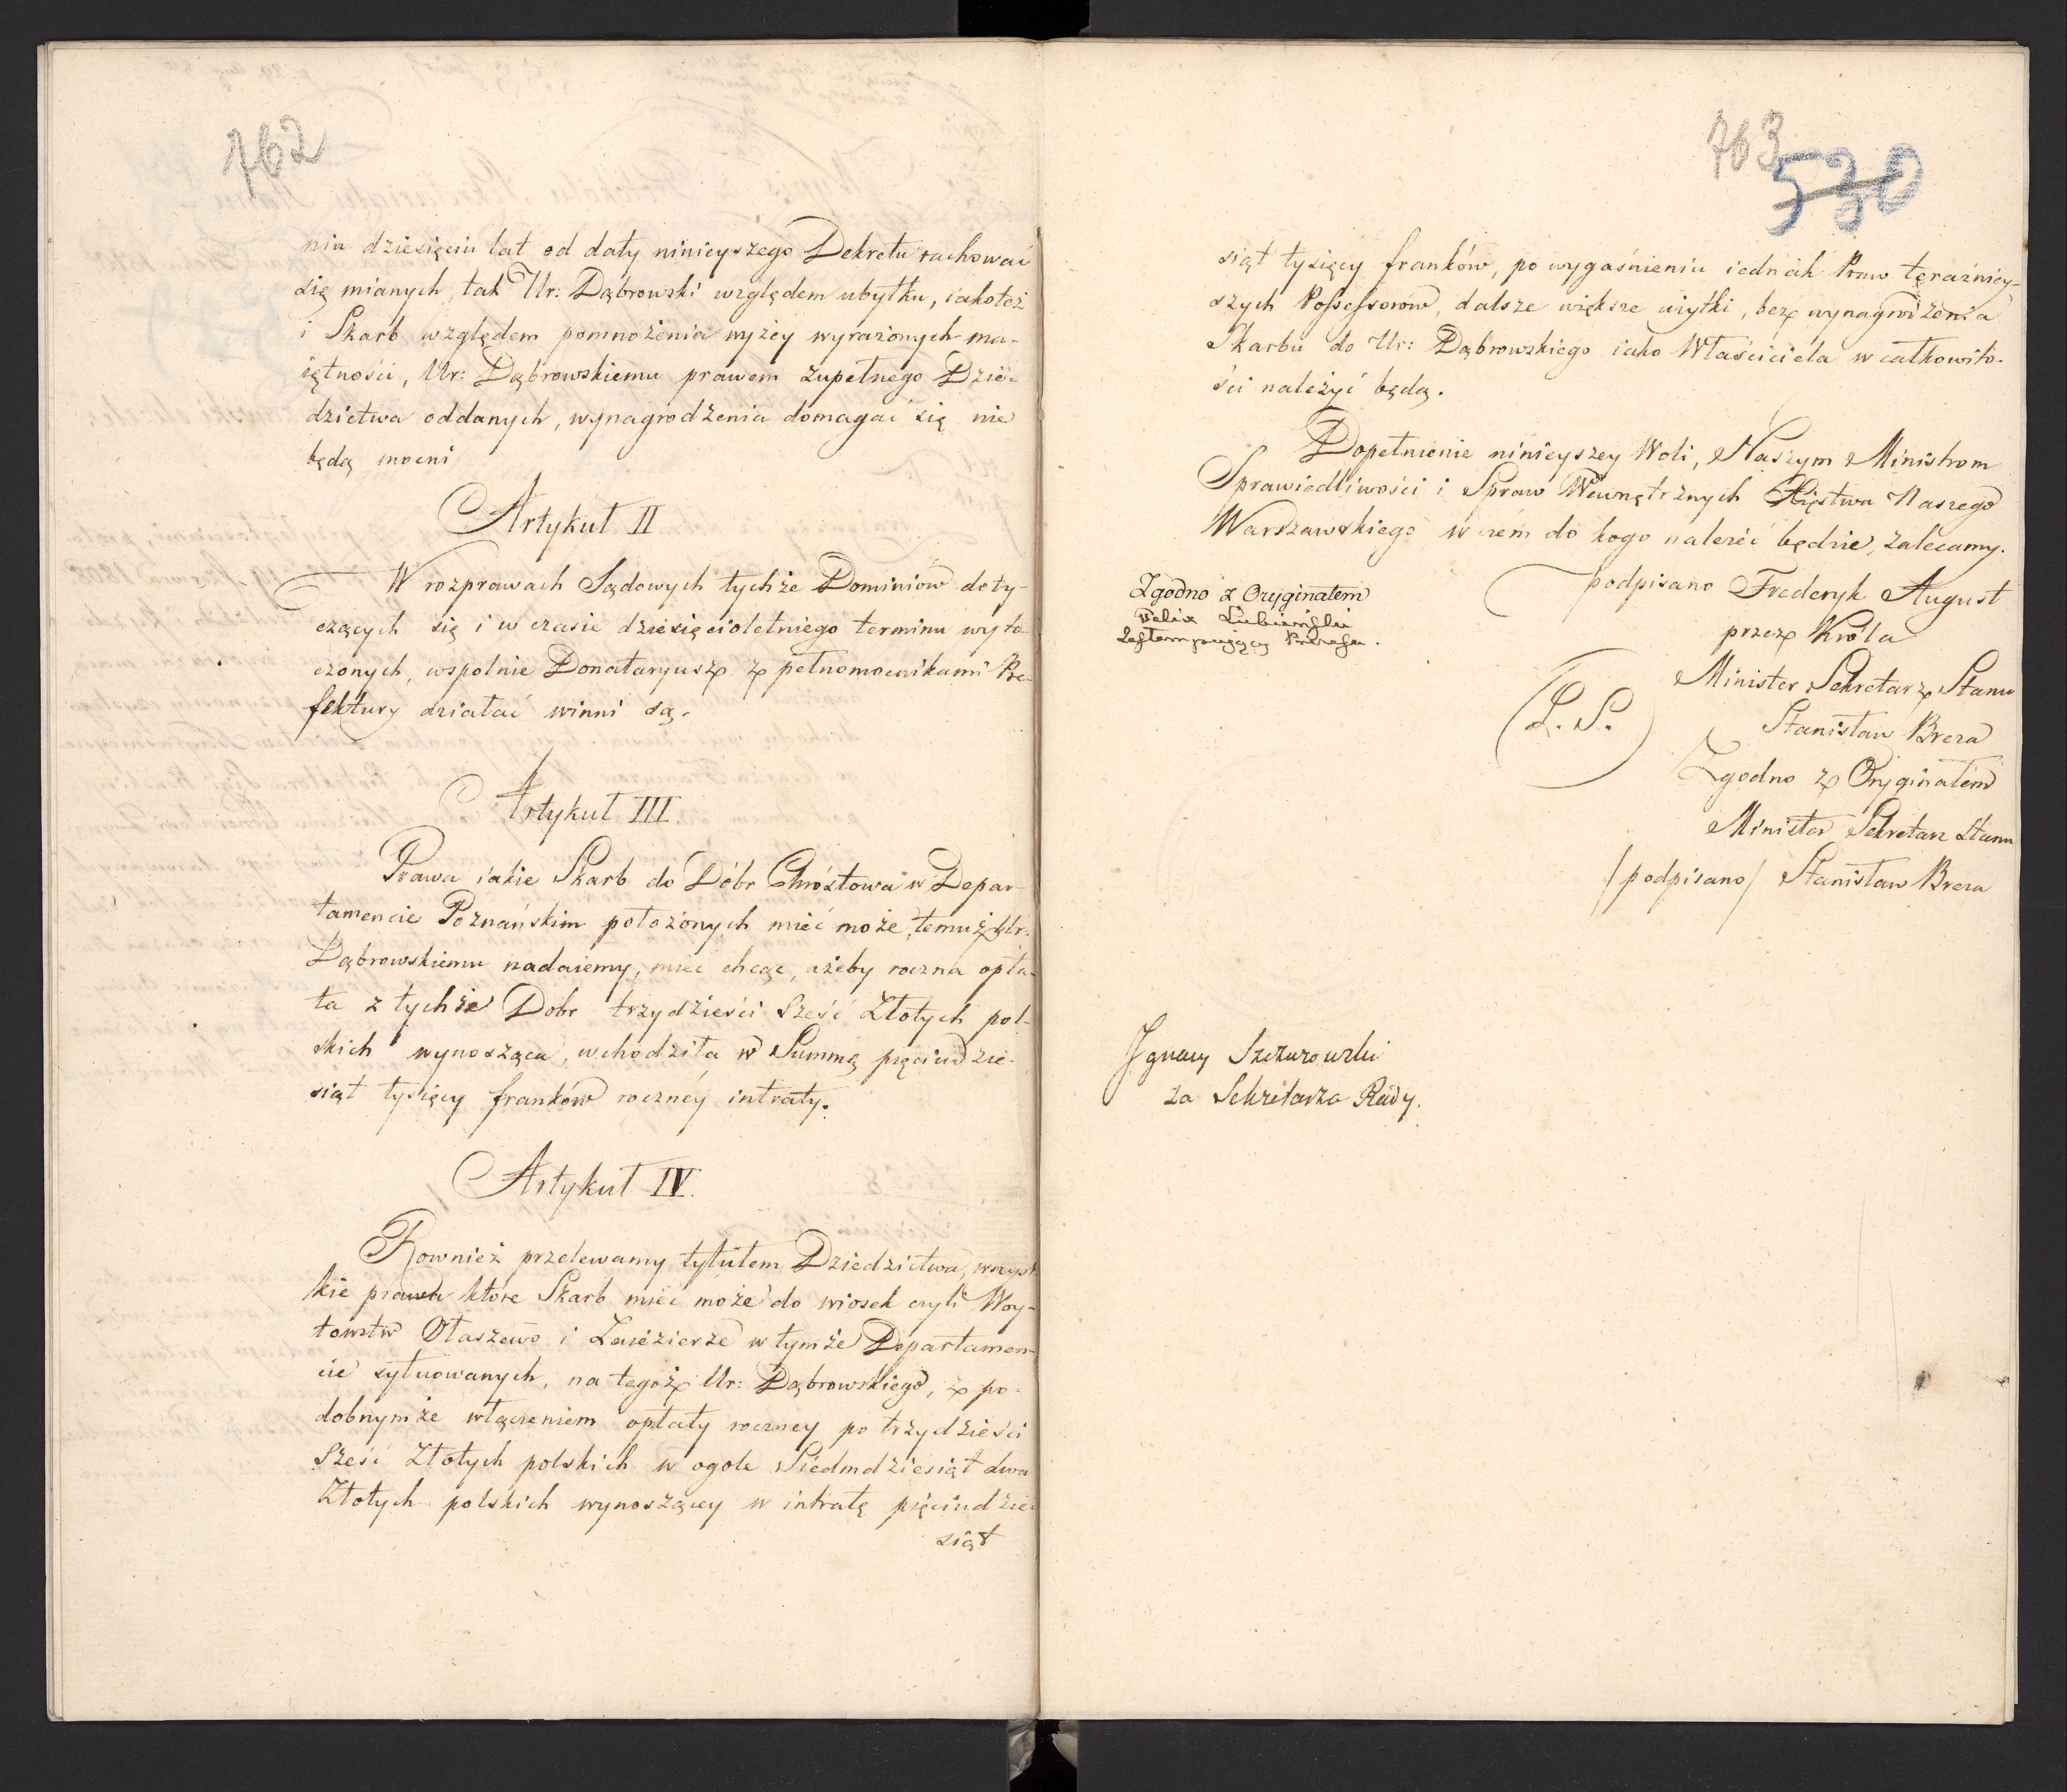 762
niu dziesięciu lat od daty ninieyszego Dekretu rachować
się mianych, tak Ur: Dąbrowski względem ubytku, iakoteż
i Skarb względem pomnożenia wyżey wyrażonych ma-
iętności, Ur: Dąbrowskiemu prawem zupełnego Dzie-
dzictwa oddanych, wynagrodzenia domagać się nie
będą mocni
Artykuł II
W rozprawach Sądowych tychże Dominiów doty-
czących się i w czasie dziesięcioletniego terminu wyto-
czonych, wspolnie Donataryusz z pełnomocnikami Pre-
fektury działać winni są.
Artykuł III
Prawa iakie Skarb do Dóbr Chróstowa w Depar-
tamencie Poznańskim położonych mieć może, temuż Ur:
Dąbrowskiemu nadaiemy, mieć chcąc, ażeby roczna opła-
ta z tychże Dobr trzydzieści sześć Złotych pol-
skich wynosząca, wchodziła w Summę pięciudzie-
siąt tysięcy franków roczney intraty.
Artykuł IV.
Rownież przelewamy tytułem Dziedzictwa, wszyst-
kie prawa ktore Skarb mieć może do wiosek czyli Woy-
towstw Otaszewo i w tymże Departamen-
cie sytuowanych, na tegoż Ur: Dąbrowskiego, z po-
dobnymże włączeniem opłaty roczney po trzydzieści
sześć Złotych polskich w ogole Siedmdziesiąt dwa
Złotych polskich wynoszącey w intratę pięciudzie-
siąt
763
530
siąt tysięcy franków, po wygaśnieniu iednak Praw teraźniey-
szych Possessorów, dalsze większe użytki, bez wynagrodzenia
Skarbu do Ur: Dąbrowskiego iako Właściciela w całkowito-
ści należyć będą.
Dopełnienie ninieyszey Woli, Naszym Ministrom
Sprawiedliwości i Spraw Wewnętrznych Xięstwa Naszego
Warszawskiego w czém do kogo należeć będzie, zalecamy.
podpisano Frederyk August
przez Króla
Minister Sekretarz Stanu
(L. S.)
Stanisław Breza
Zgodno z Oryginałem
Minister Sekretarz Stanu
/podpisano/ Stanisław Breza
Zgodno z Oryginałem
Felix Łubieński
Zastempujący Prezesa.
Ignacy Szczurowski
za Sekretarza Rady.